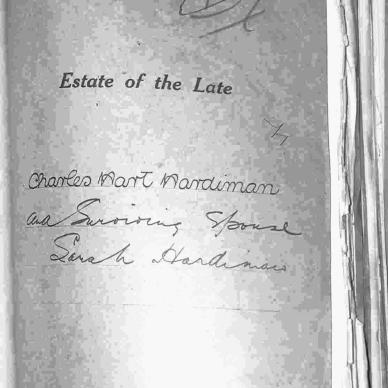 Estate of the Late
Charles Hart Hardiman
and Surviving Spouse
Sarah Hardiman